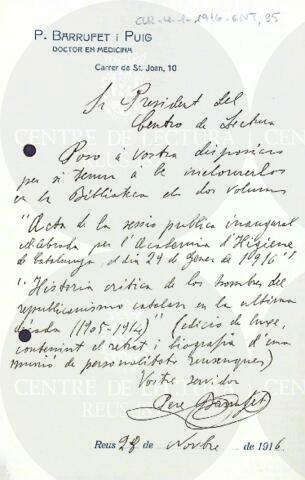 CLR-4-1-1916-ENT, 85
P. BARRUFET i PUIG
DOCTOR EN MEDICINA
Carrer de St. Joan, 10
Sr President del
Centro de Lectura
Poso á vostra disposició
per si tenen á be incloure'ls
en la Biblioteca els dos volums
"Acta de la sessio publica inaugural
celebrada per l'Academia d'Higiene
de Catalunya el dia 24 de Gener de 1916"
"Historia critica de los hombres del
republicanismo catalan en la ultima
década (1905-1914)" (edició de luxe,
contenint el retrat i biografia d'una
munió de personalitats reusenques)
Vostre servidor
Pere Barrufet
Reus 28 de Novbre de 1916
CENTRE DE LECTURA
REUS